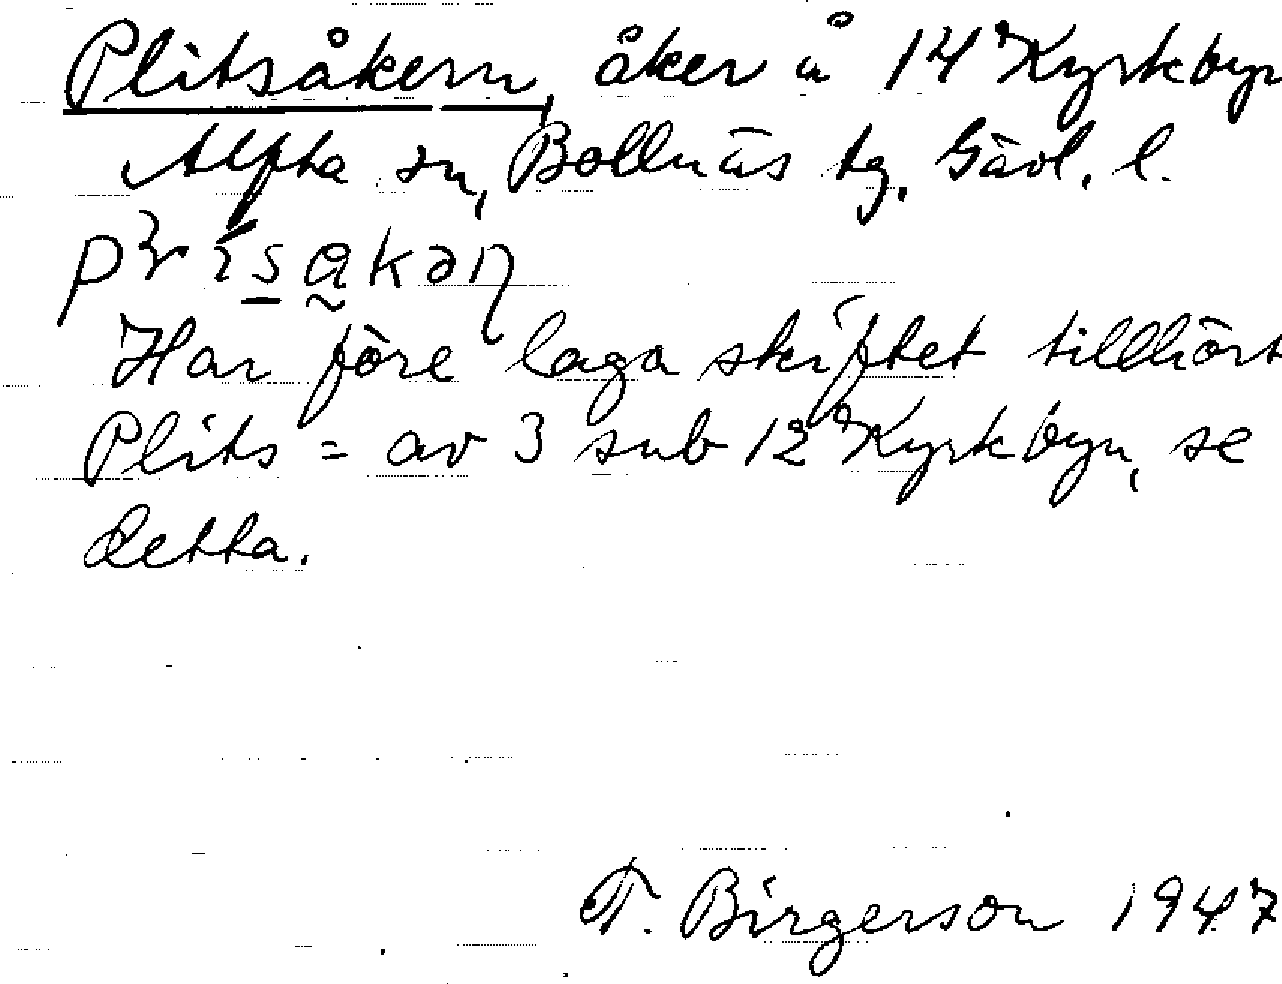 Plitsåkern, åker å 14 Kyrkbyn
Alfta sn, Bollnäs tg, Gävl. l.
Har före laga skiftet tillhört
Plits = av 3 sub 12 Kyrkbyn, se
detta.
T. Birgerson 1947